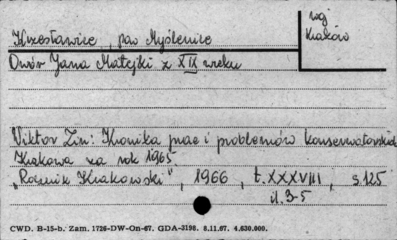 woj
Kraków
Krzesławice, pow Myślenice
Dwór Jana Matejki z XIX wieku
Wiktor Zin: Kronika prac i problemów konserwatorskich
Krakowa za rok 1965
„Rocznik Krakowski", 1966, t. XXXVIII, s. 125
il. 3-5
CWD. B-15-b. Zam. 1726-DW-On-67. GDA-3198. 8.11.67. 4.630.000.